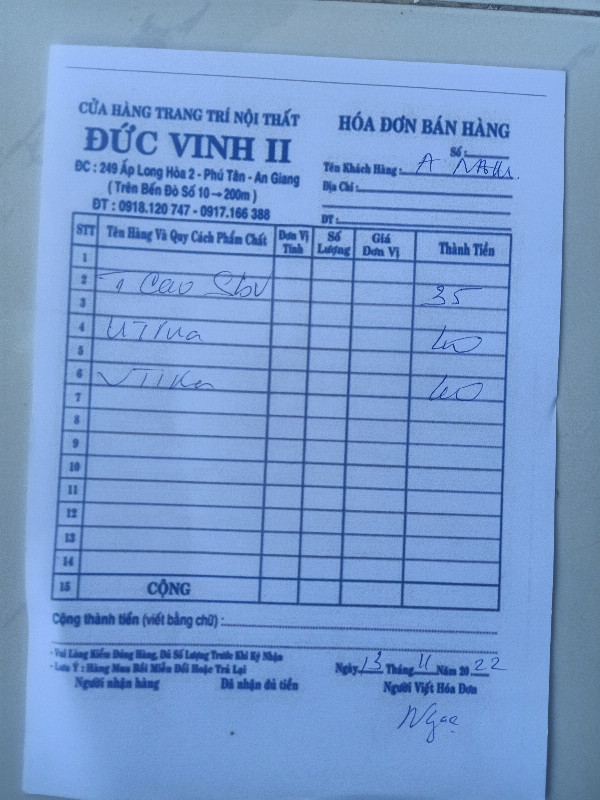 CỬA HÀNG TRANG TRÍ NỘI THẤT
ĐỨC VINH II
ĐC : 249 Ấp Long Hòa 2 - Phú Tân - An Giang
( Trên Bến Đò Số 10 → 200m )
ĐT : 0918.120 747 - 0917.166 388
HÓA ĐƠN BÁN HÀNG
Số :
Tên Khách Hàng : A
Địa Chỉ :
ĐT :
STT Tên Hàng Và Quy Cách Phẩm Chất Đơn Vị Tính Số Lượng Giá Đơn Vị Thành Tiền
1
2 Cao 35
3
4 40
5
6 40
7
8
9
10
11
12
13
14
15 CỘNG
Cộng thành tiền (viết bằng chữ) :
- Vui Lòng Kiểm Đúng Hàng, Đủ Số Lượng Trước Khi Ký Nhận
- Lưu Ý : Hàng Mua Rồi Miễn Đổi Hoặc Trả Lại
Ngày 13 Tháng 11 Năm 20 22
Người nhận hàng Đã nhận đủ tiền Người Viết Hóa Đơn
Ngọc